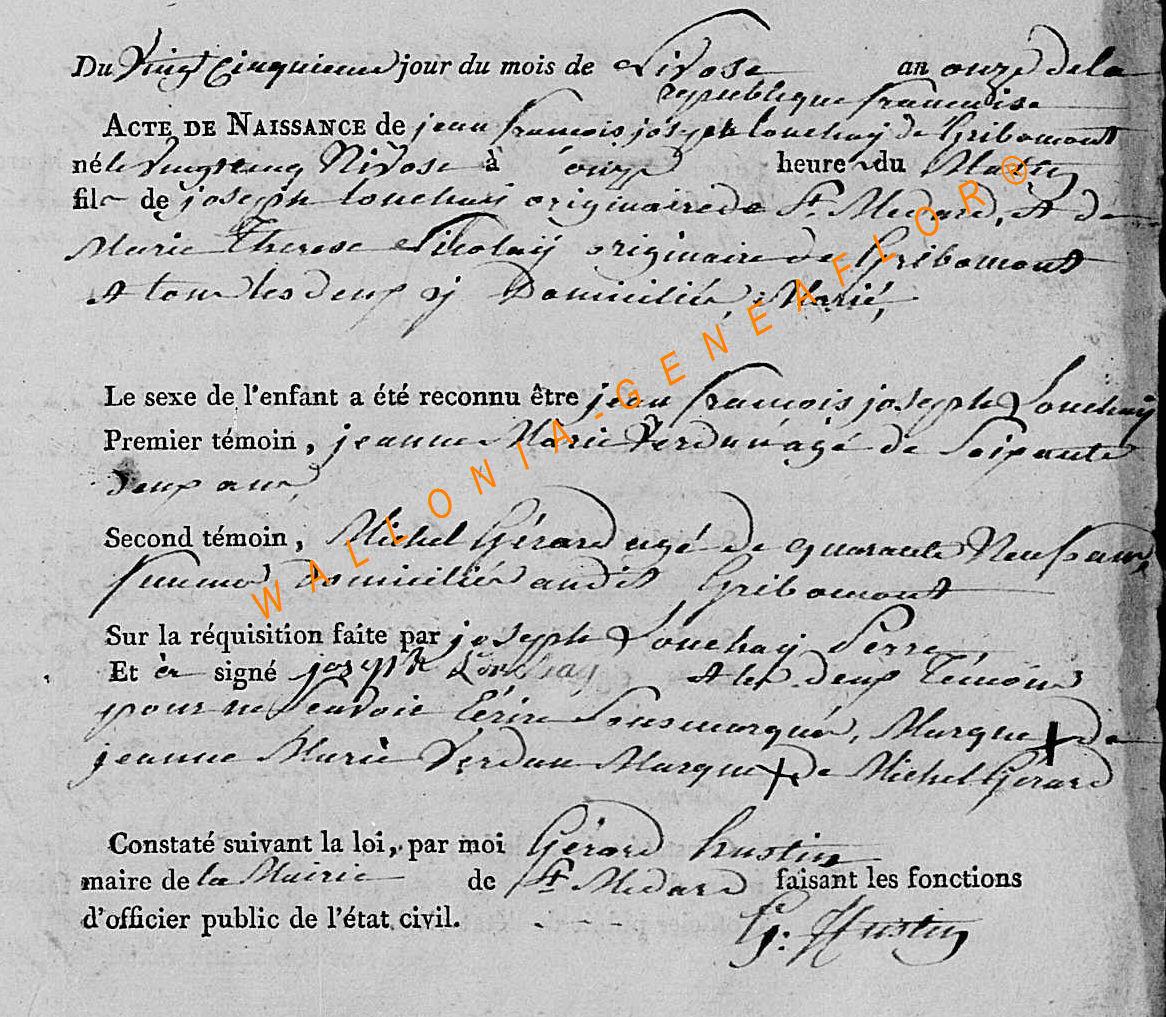 Du Vingt Cinquieme jour du mois de Nivose an onze de la
republique francoise
ACTE DE NAISSANCE de jean francois joseph Louchay de Gribomont
né le Vingt cinq Nivose à onze heure du Matin
fils de joseph Louchay originaire de St. Medard, et de
Marie Therese Nicolay originaire de Gribomont
et tous les deux y Domiciliés, Marié,
Le sexe de l'enfant a été reconnu être jean francois joseph Louchay
Premier témoin, jeanne Marie Verdun agé de Soixante
deux ans,
Second témoin, Michel Gérard agé de quarante Neuf ans,
domiciliés audit Gribomont
Sur la réquisition faite par joseph Louchay Perre,
Et signé joseph Louchay et les deux Témoins
pour ne Scavoir Ecrire Sousmarqués, Marque + de
jeanne Marie Verdun Marque + de Michel Gérard
Constaté suivant la loi, par moi Gérard hustin
maire de la Mairie de St Medard faisant les fonctions
d'officier public de l'état civil.
G: Hustin
WALLONIA-GENEAFLOR®